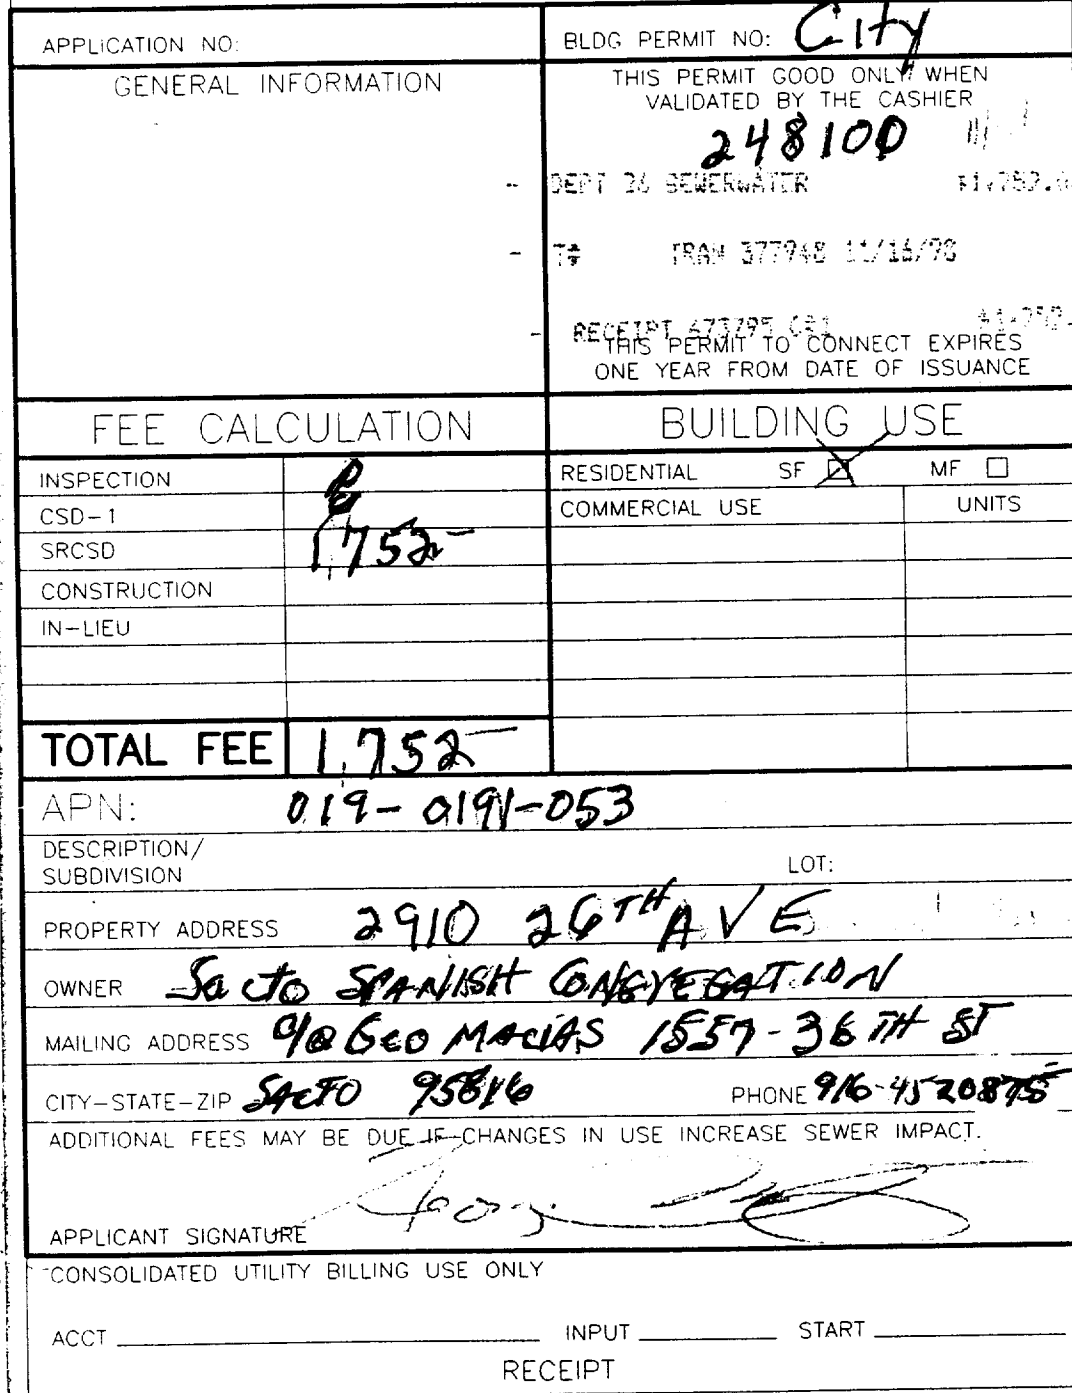 APPLICATION NO:
BLDG PERMIT NO: City
GENERAL INFORMATION
THIS PERMIT GOOD ONLY WHEN
VALIDATED BY THE CASHIER
248100
DEPT 26 SEWERWATER $1,752.0
T# TRAN 377948 11/16/98
RECEIPT 673795 $1,752.
THIS PERMIT TO CONNECT EXPIRES
ONE YEAR FROM DATE OF ISSUANCE
FEE CALCULATION
INSPECTION
CSD-1
SRCSD 1,752-
CONSTRUCTION
IN-LIEU
TOTAL FEE 1,752-
BUILDING USE
RESIDENTIAL SF MF
COMMERCIAL USE UNITS
APN: 019-0191-053
DESCRIPTION/
SUBDIVISION LOT:
PROPERTY ADDRESS 2910 26TH AVE
OWNER Sacto SPANISH CONGREGATION
MAILING ADDRESS c/o GEO MACIAS 1557-36TH ST
CITY-STATE-ZIP SACTO 95816 PHONE 916-4520875
ADDITIONAL FEES MAY BE DUE IF CHANGES IN USE INCREASE SEWER IMPACT.
APPLICANT SIGNATURE
CONSOLIDATED UTILITY BILLING USE ONLY
ACCT INPUT START
RECEIPT